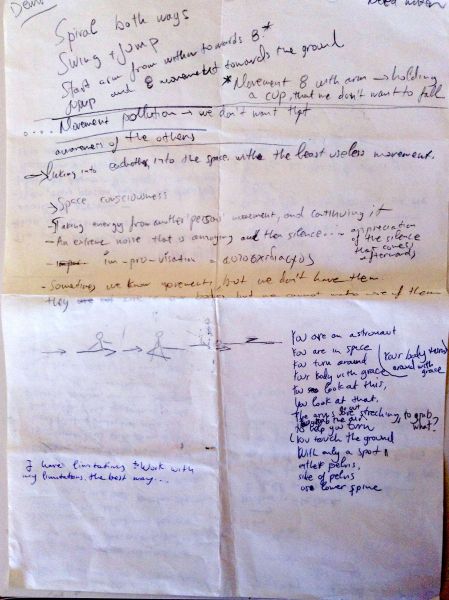 Demo
Need
Spiral both ways
Swing + jump
Start arm from within towards 8*
Jump and 8 movement towards the ground
*Movement 8 with arm → holding
a cup, that we don't want to fall
.... Movement pollution → we don't want that
awareness of the others
→ into each other, into the space, with the least useless movement.
→ Space consciousness
- Taking energy from another person's movement, and continuing it
- An extreme noise that is annoying and then silence... → appreciation
of the silence
that comes
afterwards
- im-pro-visation =
- Sometimes we know movements, but we don't have them.
they are not but we cannot use of them
You are an astronaut
You are in space
You turn around
Your body with grace
(Your body
around with
grace
You look at this,
You look at that.
The arms are streching, to grab
what?
to help you turn
You touch the ground
With only a spot
either pelvis,
side of pelvis
use lower spine
I have limitations & work with
my limitations the best way...